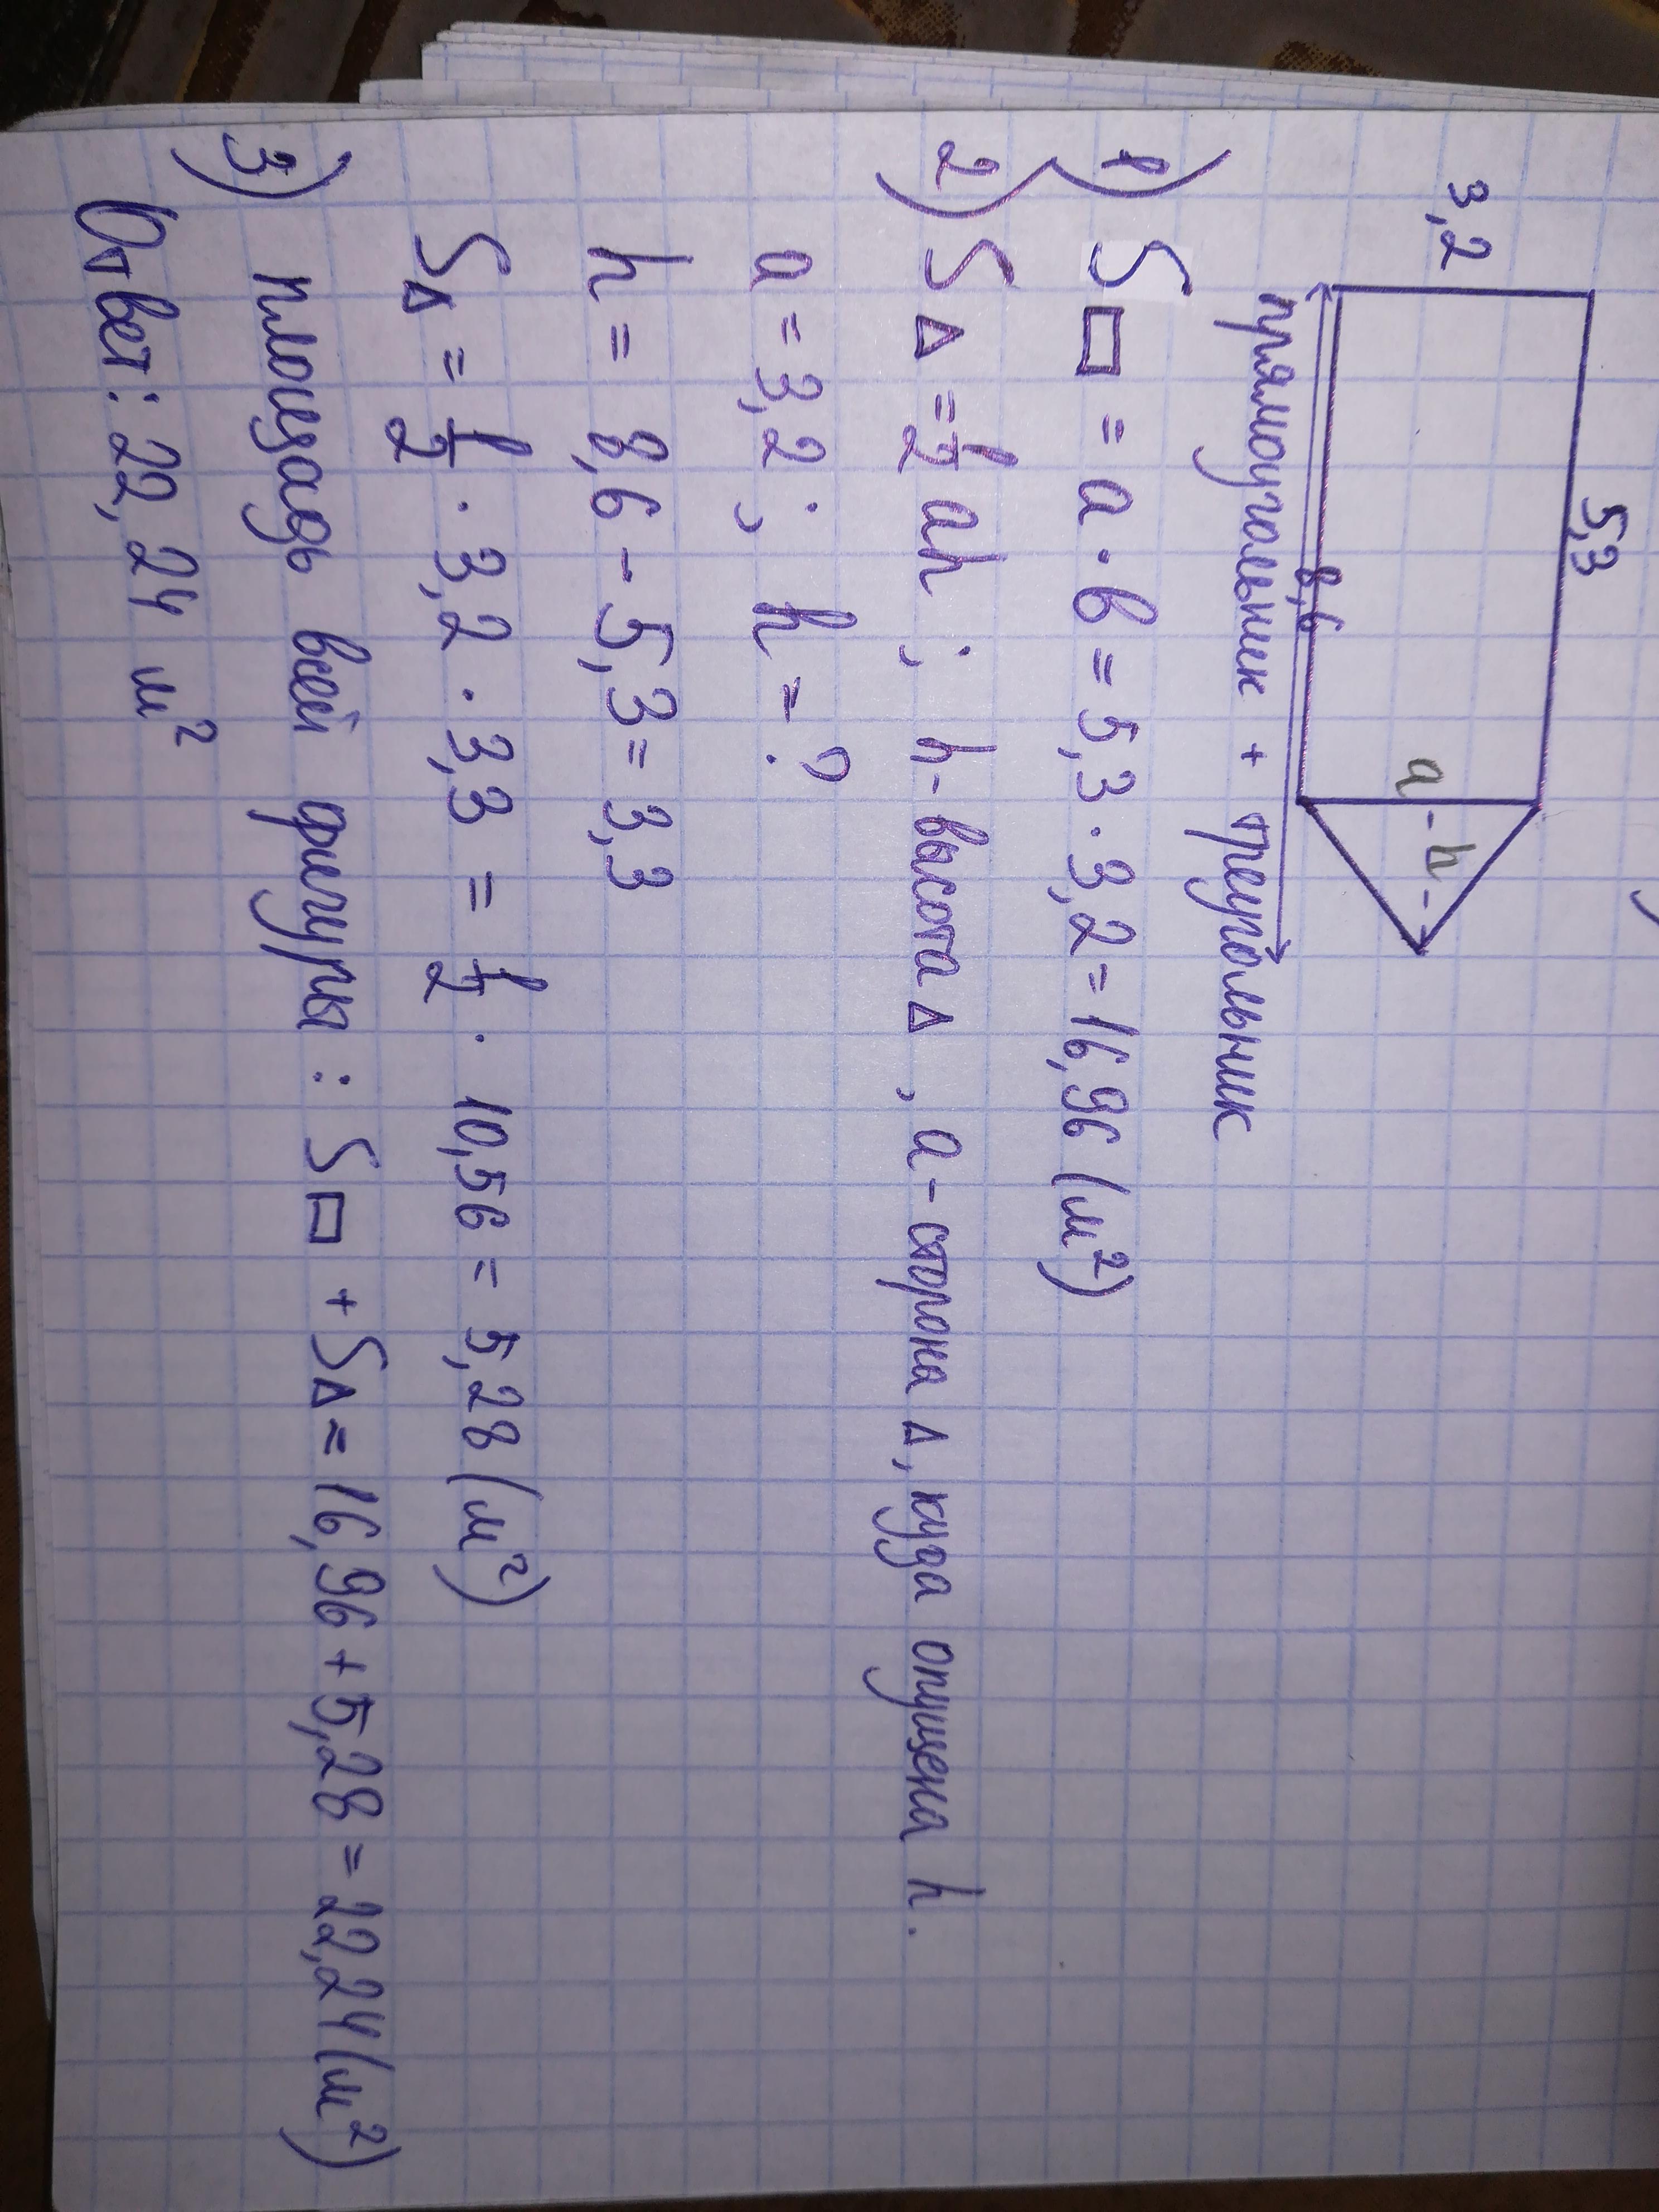 5,3
3,2
a - h -
8,6
прямоугольник + треугольник
1) S□ = a · b = 5,3 · 3,2 = 16,96 (м²)
2) S△ = 1/2 ah ; h - высота △, a - сторона △, куда опущена h.
a = 3,2 ; h = ?
h = 8,6 - 5,3 = 3,3
S△ = 1/2 · 3,2 · 3,3 = 1/2 · 10,56 = 5,28 (м²)
3) площадь всей фигуры : S□ + S△ = 16,96 + 5,28 = 22,24 (м²)
Ответ: 22,24 м²